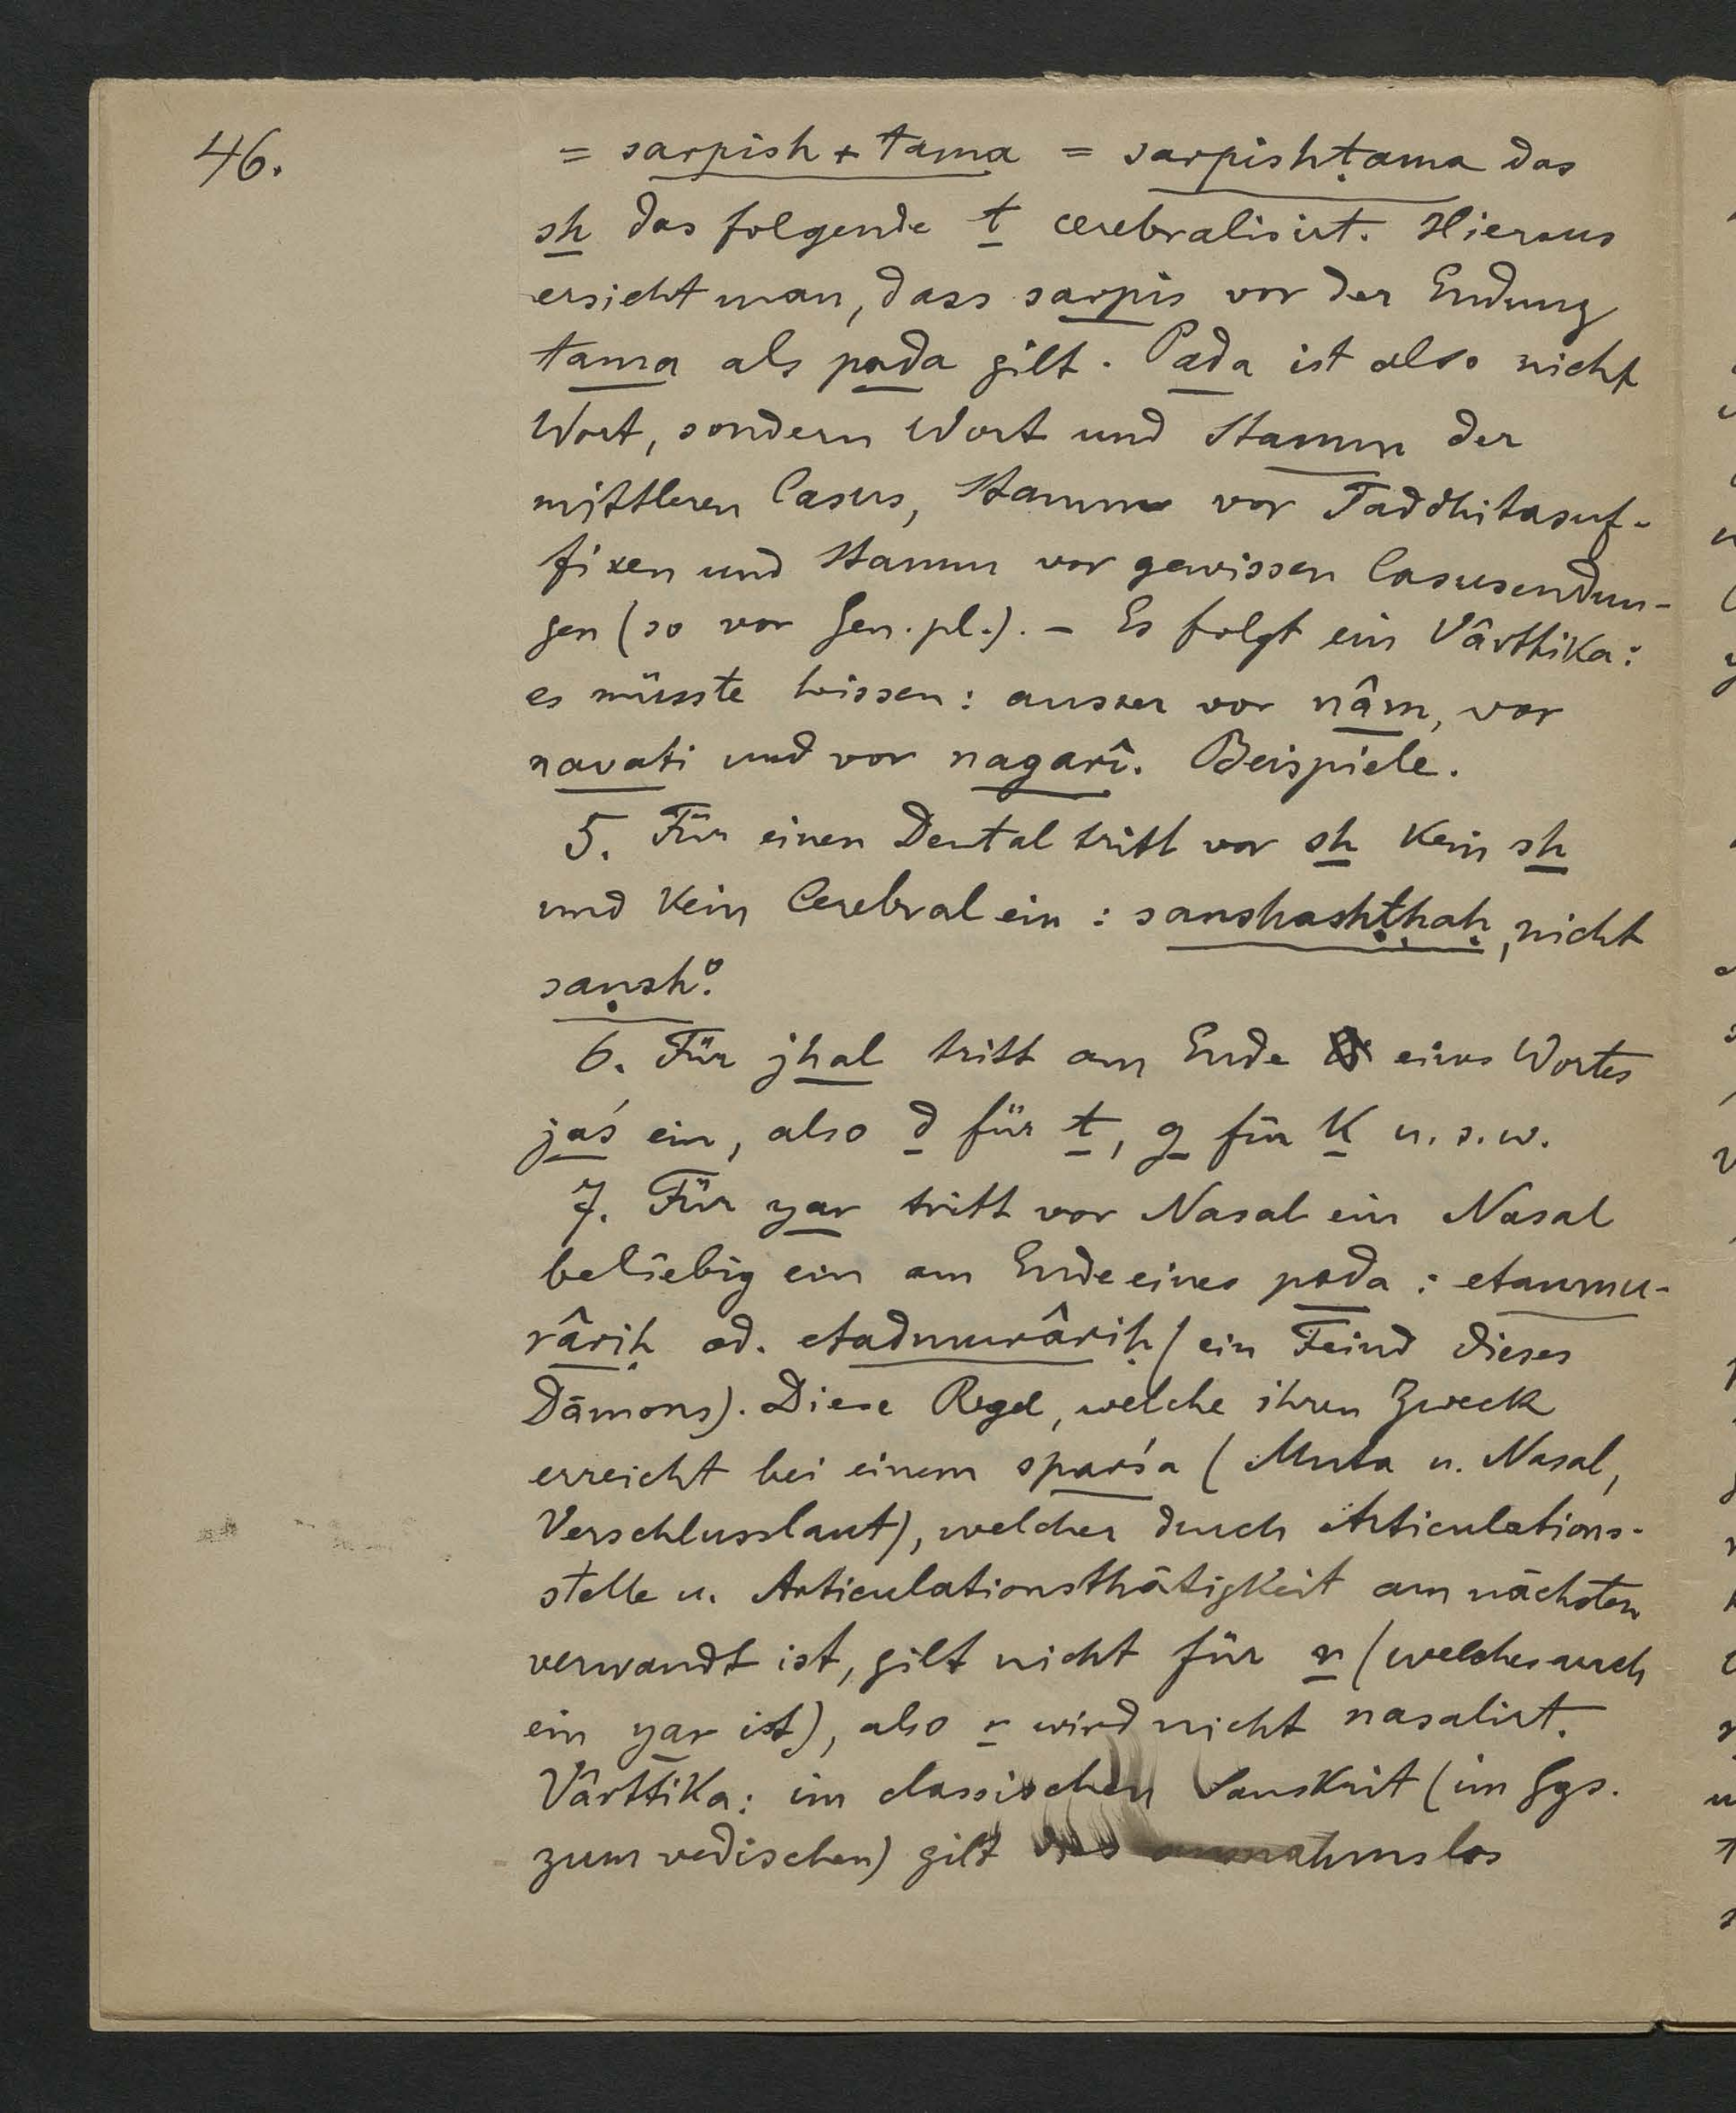 46.
= sarpish + tama = sarpishṭama das
sh das folgende t cerebralisirt. Hieraus
ersieht man, dass sarpis vor der Endung
tama als pada gilt. Pada ist also nicht
Wort, sondern Wort und Stamm der
mittleren Casus, Stamm vor Taddhitasuf-
fixen und Stamm vor gewissen Casusendun-
gen (so vor Gen. pl.). – Es folgt ein Vârttika:
es müsste heissen: ausser vor nâm, vor
navati und vor nagarî. Beispiele.
5. Für einen Dental tritt vor sh kein sh
und kein Cerebral ein: sanshashṭhaḥ, nicht
saṇsh°.
6. Für jhal tritt am Ende eines Wortes
jaś ein, also d für t, g für k u. s. w.
7. Für yar tritt vor Nasal ein Nasal
beliebig ein am Ende eines pada: etanmu-
râriḥ od. etadmurâriḥ (ein Feind dieses
Dämons). Diese Regel, welche ihren Zweck
erreicht bei einem sparśa (Muta u. Nasal,
Verschlusslaut), welcher durch Articulations-
stelle u. Articulationsthätigkeit am nächsten
verwandt ist, gilt nicht für r (welches auch
ein yar ist), also r wird nicht nasalirt.
Vârttika: im classischen Sanskrit (im Ggs.
zum vedischen) gilt dies ausnahmslos